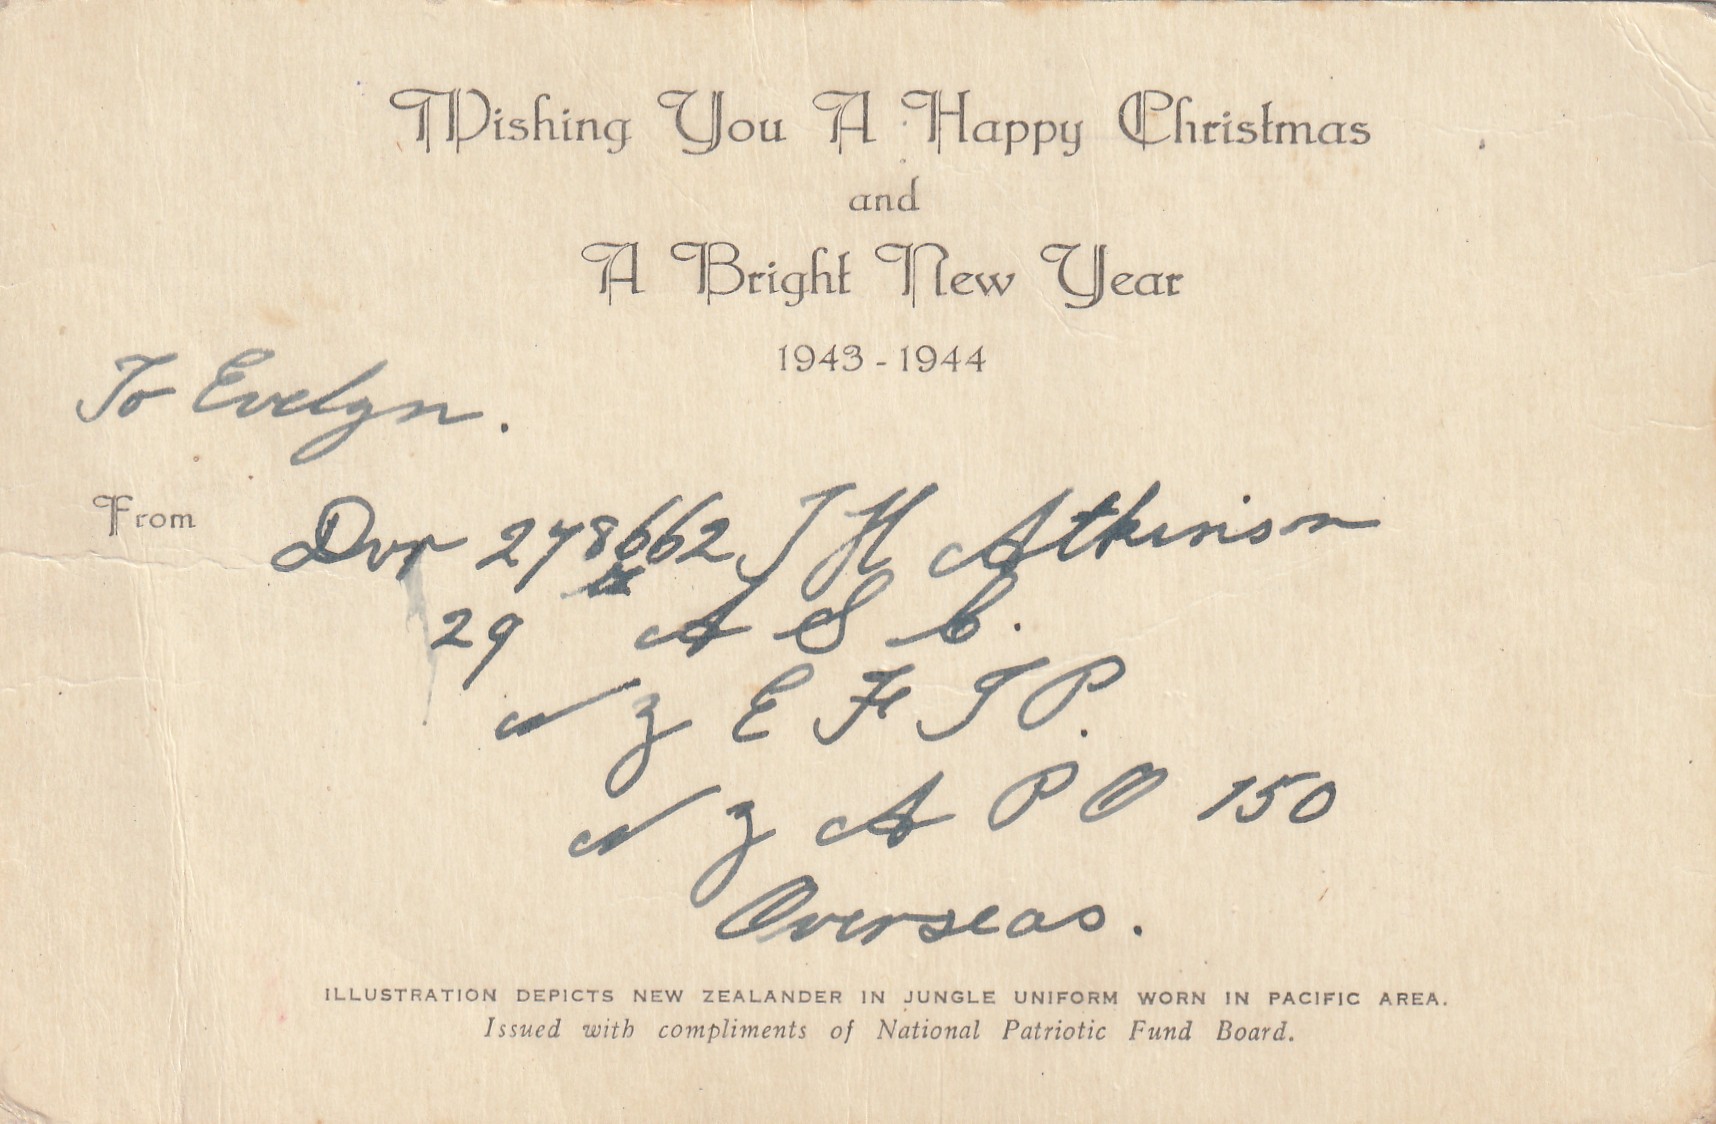 Wishing You A Happy Christmas
and
A Bright New Year
1943 - 1944
To Evelyn.
From Dvr 278662 J H Atkinson
29th A S C.
N Z E F I P.
N Z A P O 150
Overseas.
ILLUSTRATION DEPICTS NEW ZEALANDER IN JUNGLE UNIFORM WORN IN PACIFIC AREA.
Issued with compliments of National Patriotic Fund Board.